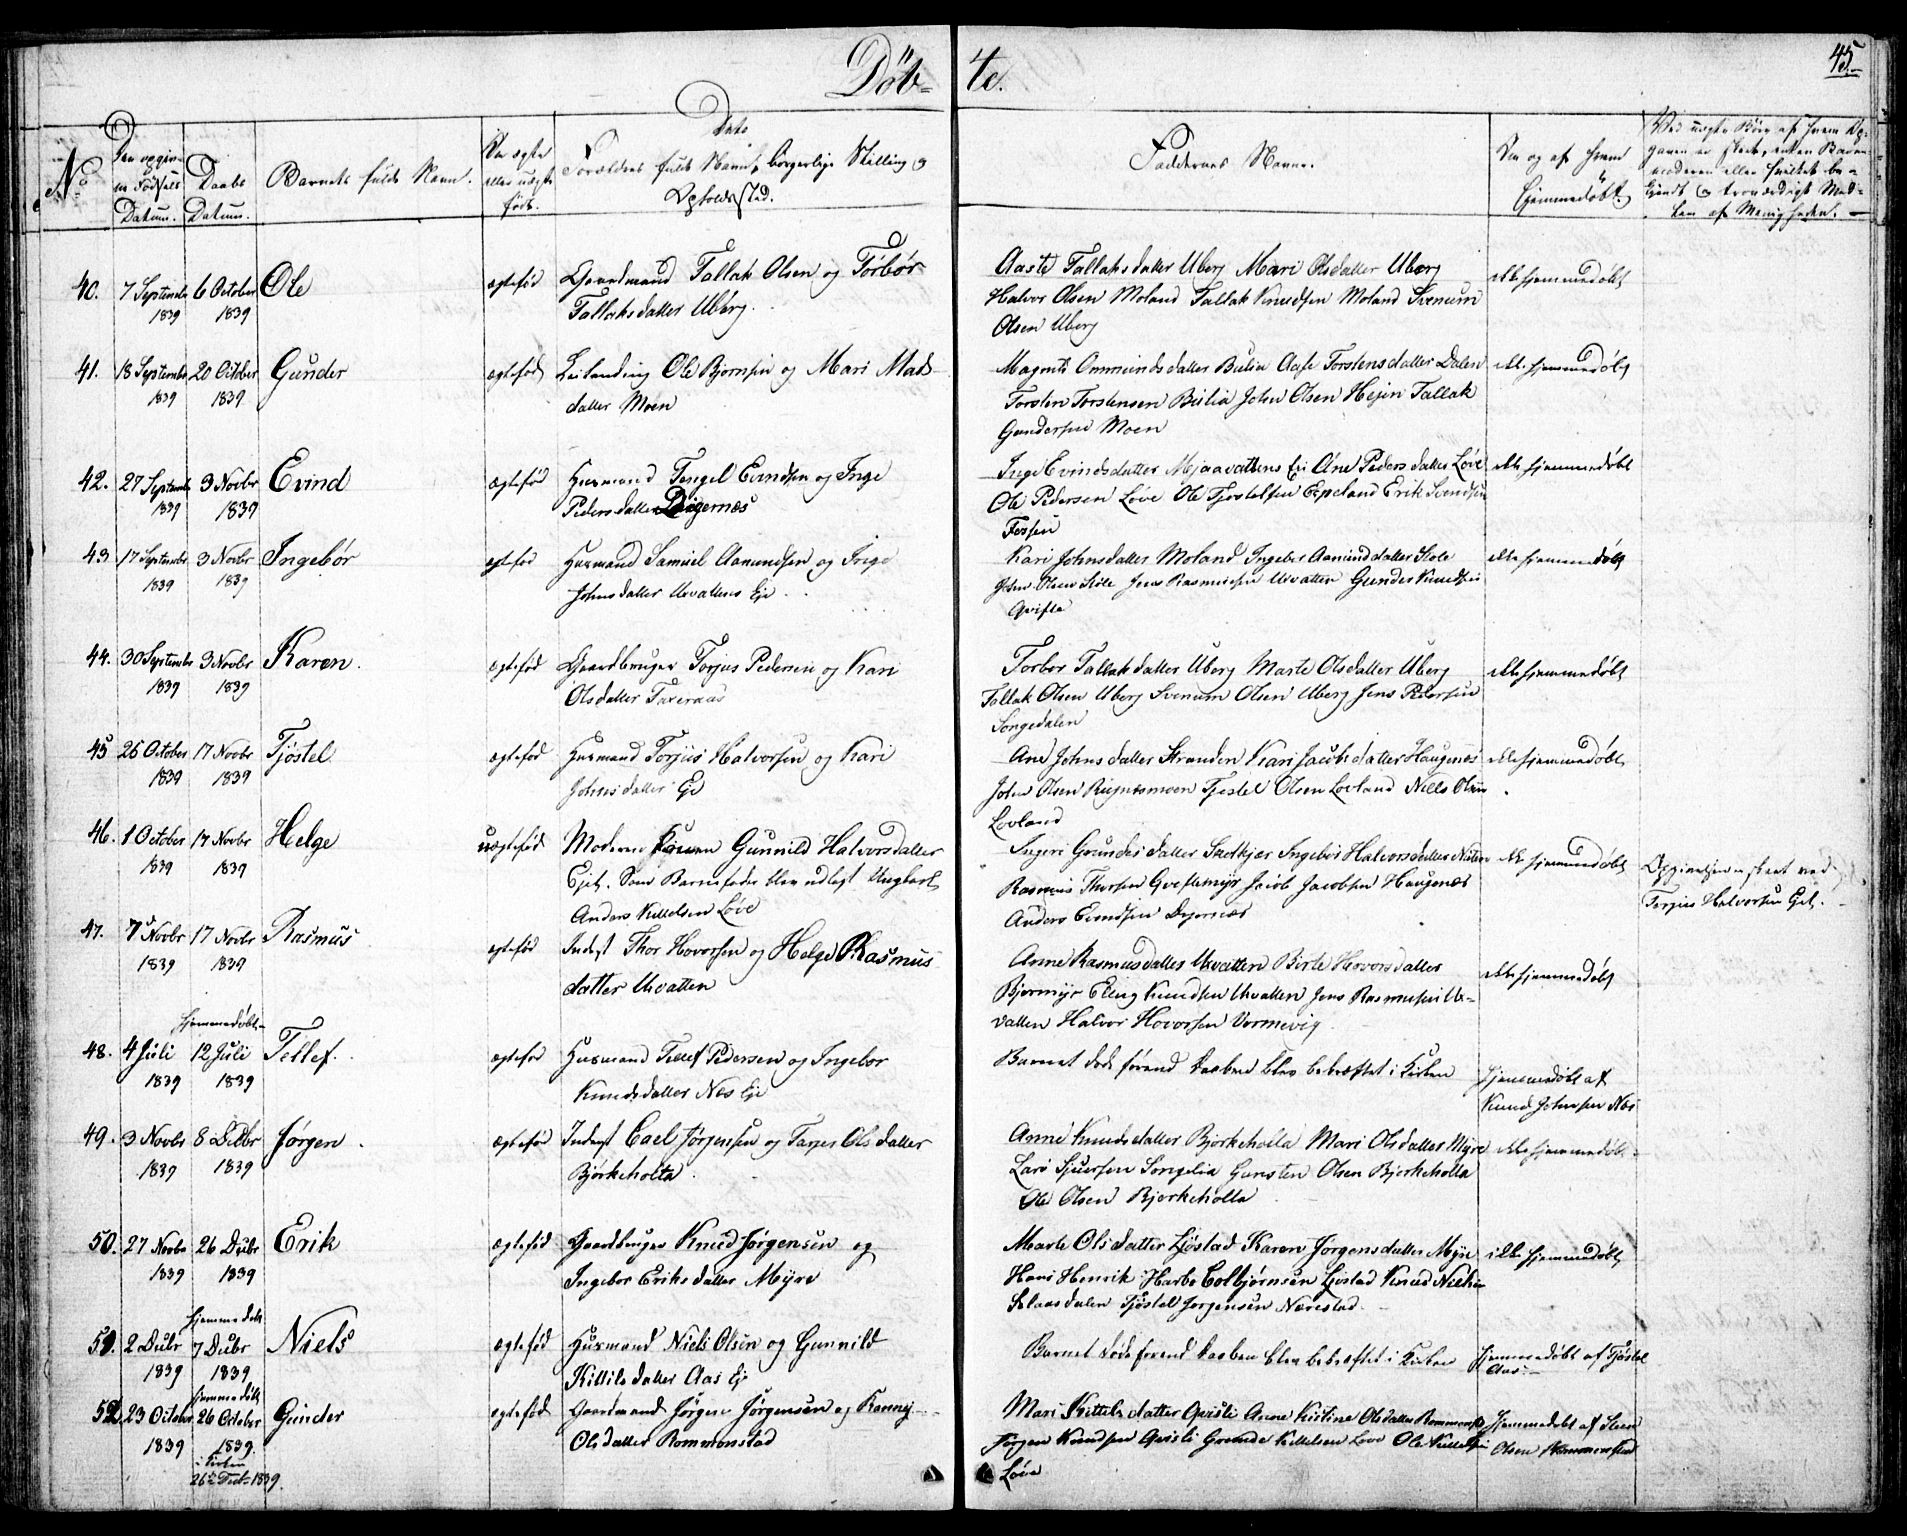 Døb-
te.
45.
Dets
No
Den opgivne Fødsels Datum.
Daabs Datum.
Barnets fulde Navn.
Om ægte eller uægte født.
Forældres fulde Navn, borgerlige Stilling og Opholdssted.
Faddernes Navne.
Om og af hvem hjemmedøbt.
40. 7 Septembr 1839 6 October 1839 Ole ægtefød Gaardmand Tallak Olsen og Torbør
Tallaksdatter Uberg.
Aaste Tallaksdatter Uberg Mari Olsdatter Uberg ikke hjemmedøbt
Halvor Olsen Moland Tallak Knudsen Moland Svenum
Olsen Uberg
41. 18 Septembr 1839 20 October 1839 Gunder ægtefød Leilending Ole Bjornsen og Mari Mads
datter Moen
Magnil Ommundsdatter Bulia Aase Torstensdatter Dalen ikke hjemmedøbt
Torsten Torstensen Bulia John Olsen Hejen Tallak
Gundersen Moen
42. 27 Septembr 1839 3 Novbr 1839 Evind ægtefød Husmand Tengel Evindsen og Inge
Pedersdatter Digernæs
Inge Evindsdatter Mjaavattens Eie Ane Pedersdatter Løve ikke hjemmedøbt
Ole Pedersen Løve Ole Tjostelsen Espeland Erik Svendsen
Fossen
43. 17 Septembr 1839 3 Novbr 1839 Ingebør ægtefød Husmand Samuel Aamundsen og Inge
Johnsdatter Uvattens Eje.
Kari Johnsdatter Moland Ingebor Aamundsdatter Stole ikke hjemmedøbt
John Olsen Stole Jens Rasmusen Uvatten Gunder Knudsen
Qvifte
44. 30 Septembr 1839 3 Novbr 1839 Karen. ægtefød Gaardbruger Torjus Pedersen og Kari
Olsdatter Taxeraas
Torbor Tallaksdatter Uberg Marte Olsdatter Uberg ikke hjemmedøbt
Tallak Olsen Uberg Svenum Olsen Uberg Jens Pedersen
Songedalen
45 26 October 1839 17 Novbr 1839 Tjøstel ægtefød Husmand Torjus Halvorsen og Kari
Johnsdatter Eje
Ane Johnsdatter Stranden Kari Jacobsdatter Haugenes ikke hjemmedøbt
John Olsen Tjostel Olsen Lovland Niels Olsen
Lovland
46. 1 October 1839 17 Novbr 1839 Helge uægtefød Moderen Gunnild Halvorsdatter
Ejet. Som Barnefader blev udlagt Ungkarl
Anders Kittelsen Løve
Ingeri Gundersdatter Ingebor Halvorsdatter ikke hjemmedøbt
Rasmus Thorsen Jacob Jacobsen Haugenæs
Anders Evindsen Digernæs
Opgivelsen skeet ved
Torjus Halvorsen Ejet.
47. 7 Novbr 1839 17 Novbr 1839 Rasmus ægtefød Inderst Thor Hovorsen og Helge Rasmus
datter Uvatten
Anne Rasmusdatter Uvatten Birte Hovorsdatter ikke hjemmedøbt
Bjormyr Elling Knudsen Uvatten Jens Rasmusen U-
vatten Halvor Hovorsen Vormevig
48. 4 Juli 1839 hjemmedøbt 12 Juli 1839 Tellef. ægtefød Husmand Tellef Pedersen og Ingebor
Knudsdatter Næs Eje
Barnet døde førend Daaben blev bekræftet i Kirken hjemmedøbt af
Knud Johnsen Næs
49. 3 Novbr 1839 8 Decbr 1839 Jørgen. ægtefød Inderst Cael Jørgensen og Taxer Olsdatter
Bjørkeholta.
Anne Knudsdatter Bjorkeholta Mari Olsdatter Myre ikke hjemmedøbt
Lars Sjursen Songelia Gunsten Olsen Bjerkeholta
Ole Olsen Bjerkeholta
50. 27 Novbr 1839 26 Decbr 1839 Erik ægtefød Gaardbruger Knud Jørgensen og
Ingebor Eriksdatter Myre
Marte Olsdatter Ljøstad Karen Jørgensdatter Myre ikke hjemmedøbt
Hans Henrik Harbo Colbjørnsen Ljøstad Knud Nielsen
Slaasdalen Tjøstel Jorgensen Nærestad
51. 2 Decbr 1839 hjemmedøbt 7 Decbr 1839 Niels ægtefød Husmand Niels Olsen og Gunnild
Kittilsdatter Aas Eje
Barnet døde førend Daaben blev bekræftet i Kirken hjemmedøbt af Tjøstel
Aas
52. 23 October 1839 hjemmedøbt 26 October 1839. i Kirken 26 Decbr 1839. Gunder ægtefød Gaardmand Jørgen Jørgensen og Rannei
Olsdatter Rommonstad
Mari Kittelsdatter Qvisli Anne Kistine Olsdatter Rommonstad hjemmedøbt af Sven
Jørgen Knudsen Qvisli Gunder Kittelsen Løve Ole Kittelsen Olsen Rommonstad
Løve